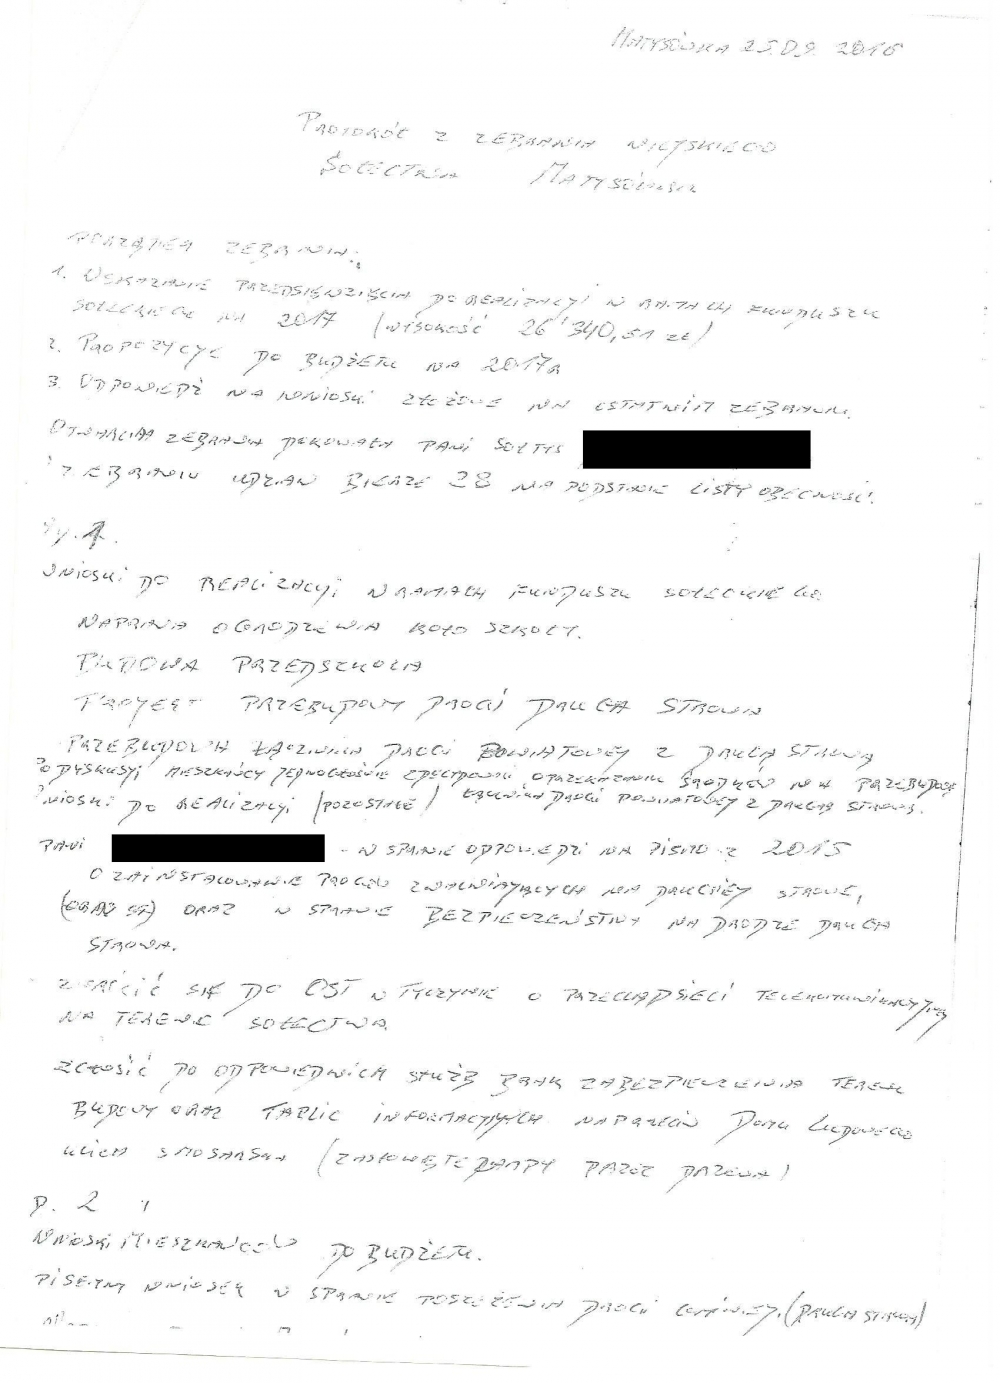 Matysówka 25.09.2016
Protokół z zebrania wiejskiego
Sołectwa Matysówka
Porządek zebrania:
1. Wskazanie przedsięwzięcia do realizacji w ramach funduszu
sołeckiego na 2017 (wysokość 26'340,51 zł)
2. Propozycje do budżetu na 2017r
3. Odpowiedź na wnioski złożone na ostatnim zebraniu.
Otwarcia zebrania dokonała pani sołtys
zebraniu udział bierze 28 na podstawie listy obecności.
1.
Wnioski do realizacji w ramach funduszu sołeckiego
Naprawa ogrodzenia koło szkoły.
Budowa przedszkola
Projekt przebudowy drogi Druga Strona
Przebudowa łącznika drogi powiatowej z Drugą Stroną
Po dyskusji mieszkańcy jednogłośnie zdecydowali o przekazaniu środków na przebudowę
łącznika drogi powiatowej z Drugą Stroną.
Wnioski do realizacji (pozostałe)
Pani - w sprawie odpowiedzi na pismo z 2015
o zainstalowanie progów zwalniających na Drugiej Stronie,
oraz w sprawie bezpieczeństwa na drodze Druga
Strona.
Zwrócić się do OST w Tyczynie o przegląd sieci telekomunikacyjnej
na terenie sołectwa.
Zgłosić do odpowiednich służb brak zabezpieczenia terenu
budowy oraz tablic informacyjnych naprzeciw Domu Ludowego
ulica (zasłonięte lampy przez drzewa)
p. 2
Wnioski mieszkańców do budżetu.
Pisemny wniosek w sprawie poszerzenia drogi gminnej. (Druga Strona)